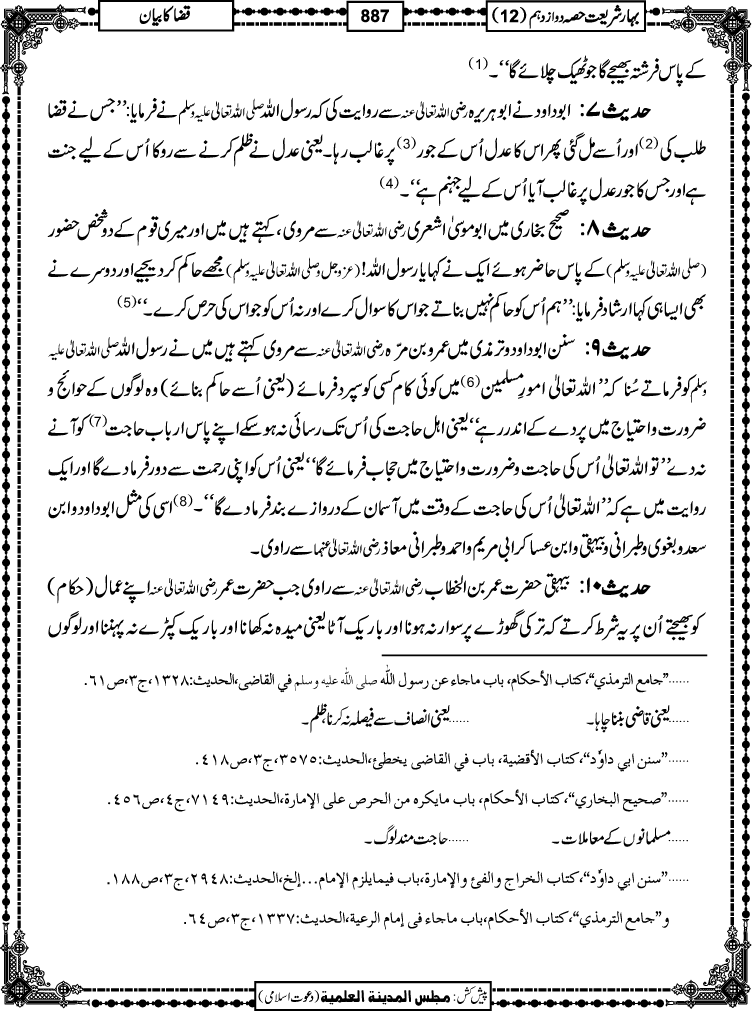 بہار شریعت حصہ دوازدہم (12)
887
قضا کا بیان
کے پاس فرشتہ بھیجے گا جو ٹھیک چلائے گا‘‘۔(1)
حدیث ۷: ابو داود نے ابوہریرہ رضی اللہ تعالیٰ عنہ سے روایت کی کہ رسول اللہ صلی اللہ تعالیٰ علیہ وسلم نے فرمایا: ’’جس نے قضا
طلب کی(2) اور اُسے مل گئی پھر اس کا عدل اُس کے جور(3) پر غالب رہا۔ یعنی عدل نے ظلم کرنے سے روکا اُس کے لیے جنت
ہے اور جس کا جور عدل پر غالب آیا اُس کے لیے جہنم ہے‘‘۔(4)
حدیث ۸: صحیح بخاری میں ابو موسیٰ اشعری رضی اللہ تعالیٰ عنہ سے مروی، کہتے ہیں میں اور میری قوم کے دو شخص حضور
(صلی اللہ تعالیٰ علیہ وسلم) کے پاس حاضر ہوئے ایک نے کہا یا رسول اللہ! (عزوجل وصلی اللہ تعالیٰ علیہ وسلم) مجھے حاکم کر دیجیے اور دوسرے نے
بھی ایسا ہی کہا ارشاد فرمایا: ’’ہم اُس کو حاکم نہیں بناتے جو اس کا سوال کرے اور نہ اُس کو جو اس کی حرص کرے۔‘‘(5)
حدیث ۹: سنن ابو داود و ترمذی میں عمرو بن مرّہ رضی اللہ تعالیٰ عنہ سے مروی کہتے ہیں میں نے رسول اللہ صلی اللہ تعالیٰ علیہ
وسلم کو فرماتے سُنا کہ ’’اللہ تعالیٰ امورِ مسلمین(6) میں کوئی کام کسی کو سپرد فرمائے (یعنی اُسے حاکم بنائے) وہ لوگوں کے حوائج و
ضرورت و احتیاج میں پردے کے اندر رہے‘‘ یعنی اہل حاجت کی اُس تک رسائی نہ ہو سکے اپنے پاس ارباب حاجت(7) کو آنے
نہ دے ’’تو اللہ تعالیٰ اُس کی حاجت و ضرورت و احتیاج میں حجاب فرمائے گا‘‘ یعنی اُس کو اپنی رحمت سے دور فرمادے گا اور ایک
روایت میں ہے کہ ’’اللہ تعالیٰ اُس کی حاجت کے وقت میں آسمان کے دروازے بند فرمادے گا‘‘۔(8) اسی کی مثل ابو داود و ابن
سعد و بغوی و طبرانی و بیہقی و ابن عساکر ابی مریم و احمد و طبرانی معاذ رضی اللہ تعالیٰ عنہما سے راوی۔
حدیث ۱۰: بیہقی حضرت عمر بن الخطاب رضی اللہ تعالیٰ عنہ سے راوی جب حضرت عمر رضی اللہ تعالیٰ عنہ اپنے عمال (حکام)
کو بھیجتے اُن پر یہ شرط کرتے کہ ترکی گھوڑے پر سوار نہ ہونا اور باریک آٹا یعنی میدہ نہ کھانا اور باریک کپڑے نہ پہننا اور لوگوں
......"جامع الترمذي"، كتاب الأحكام، باب ماجاء عن رسول الله صلى الله عليه وسلم في القاضى، الحديث: ١٣٢٨، ج٣، ص٦١.
......یعنی قاضی بننا چاہا۔ ......یعنی انصاف سے فیصلہ نہ کرنا، ظلم۔
......"سنن ابي داوٗد"، كتاب الأقضية، باب في القاضى يخطئ، الحديث: ٣٥٧٥، ج٣، ص٤١٨.
......"صحيح البخاري"، كتاب الأحكام، باب مايكره من الحرص على الإمارة، الحديث: ٧١٤٩، ج٤، ص٤٥٦.
......مسلمانوں کے معاملات۔ ......حاجت مند لوگ۔
......"سنن ابي داوٗد"، كتاب الخراج والفئ والإمارة، باب فيمايلزم الإمام...إلخ، الحديث: ٢٩٤٨، ج٣، ص١٨٨.
و"جامع الترمذي"، كتاب الأحكام، باب ماجاء فى إمام الرعية، الحديث: ١٣٣٧، ج٣، ص٦٤.
پیش کش: مجلس المدينة العلمية (دعوت اسلامی)